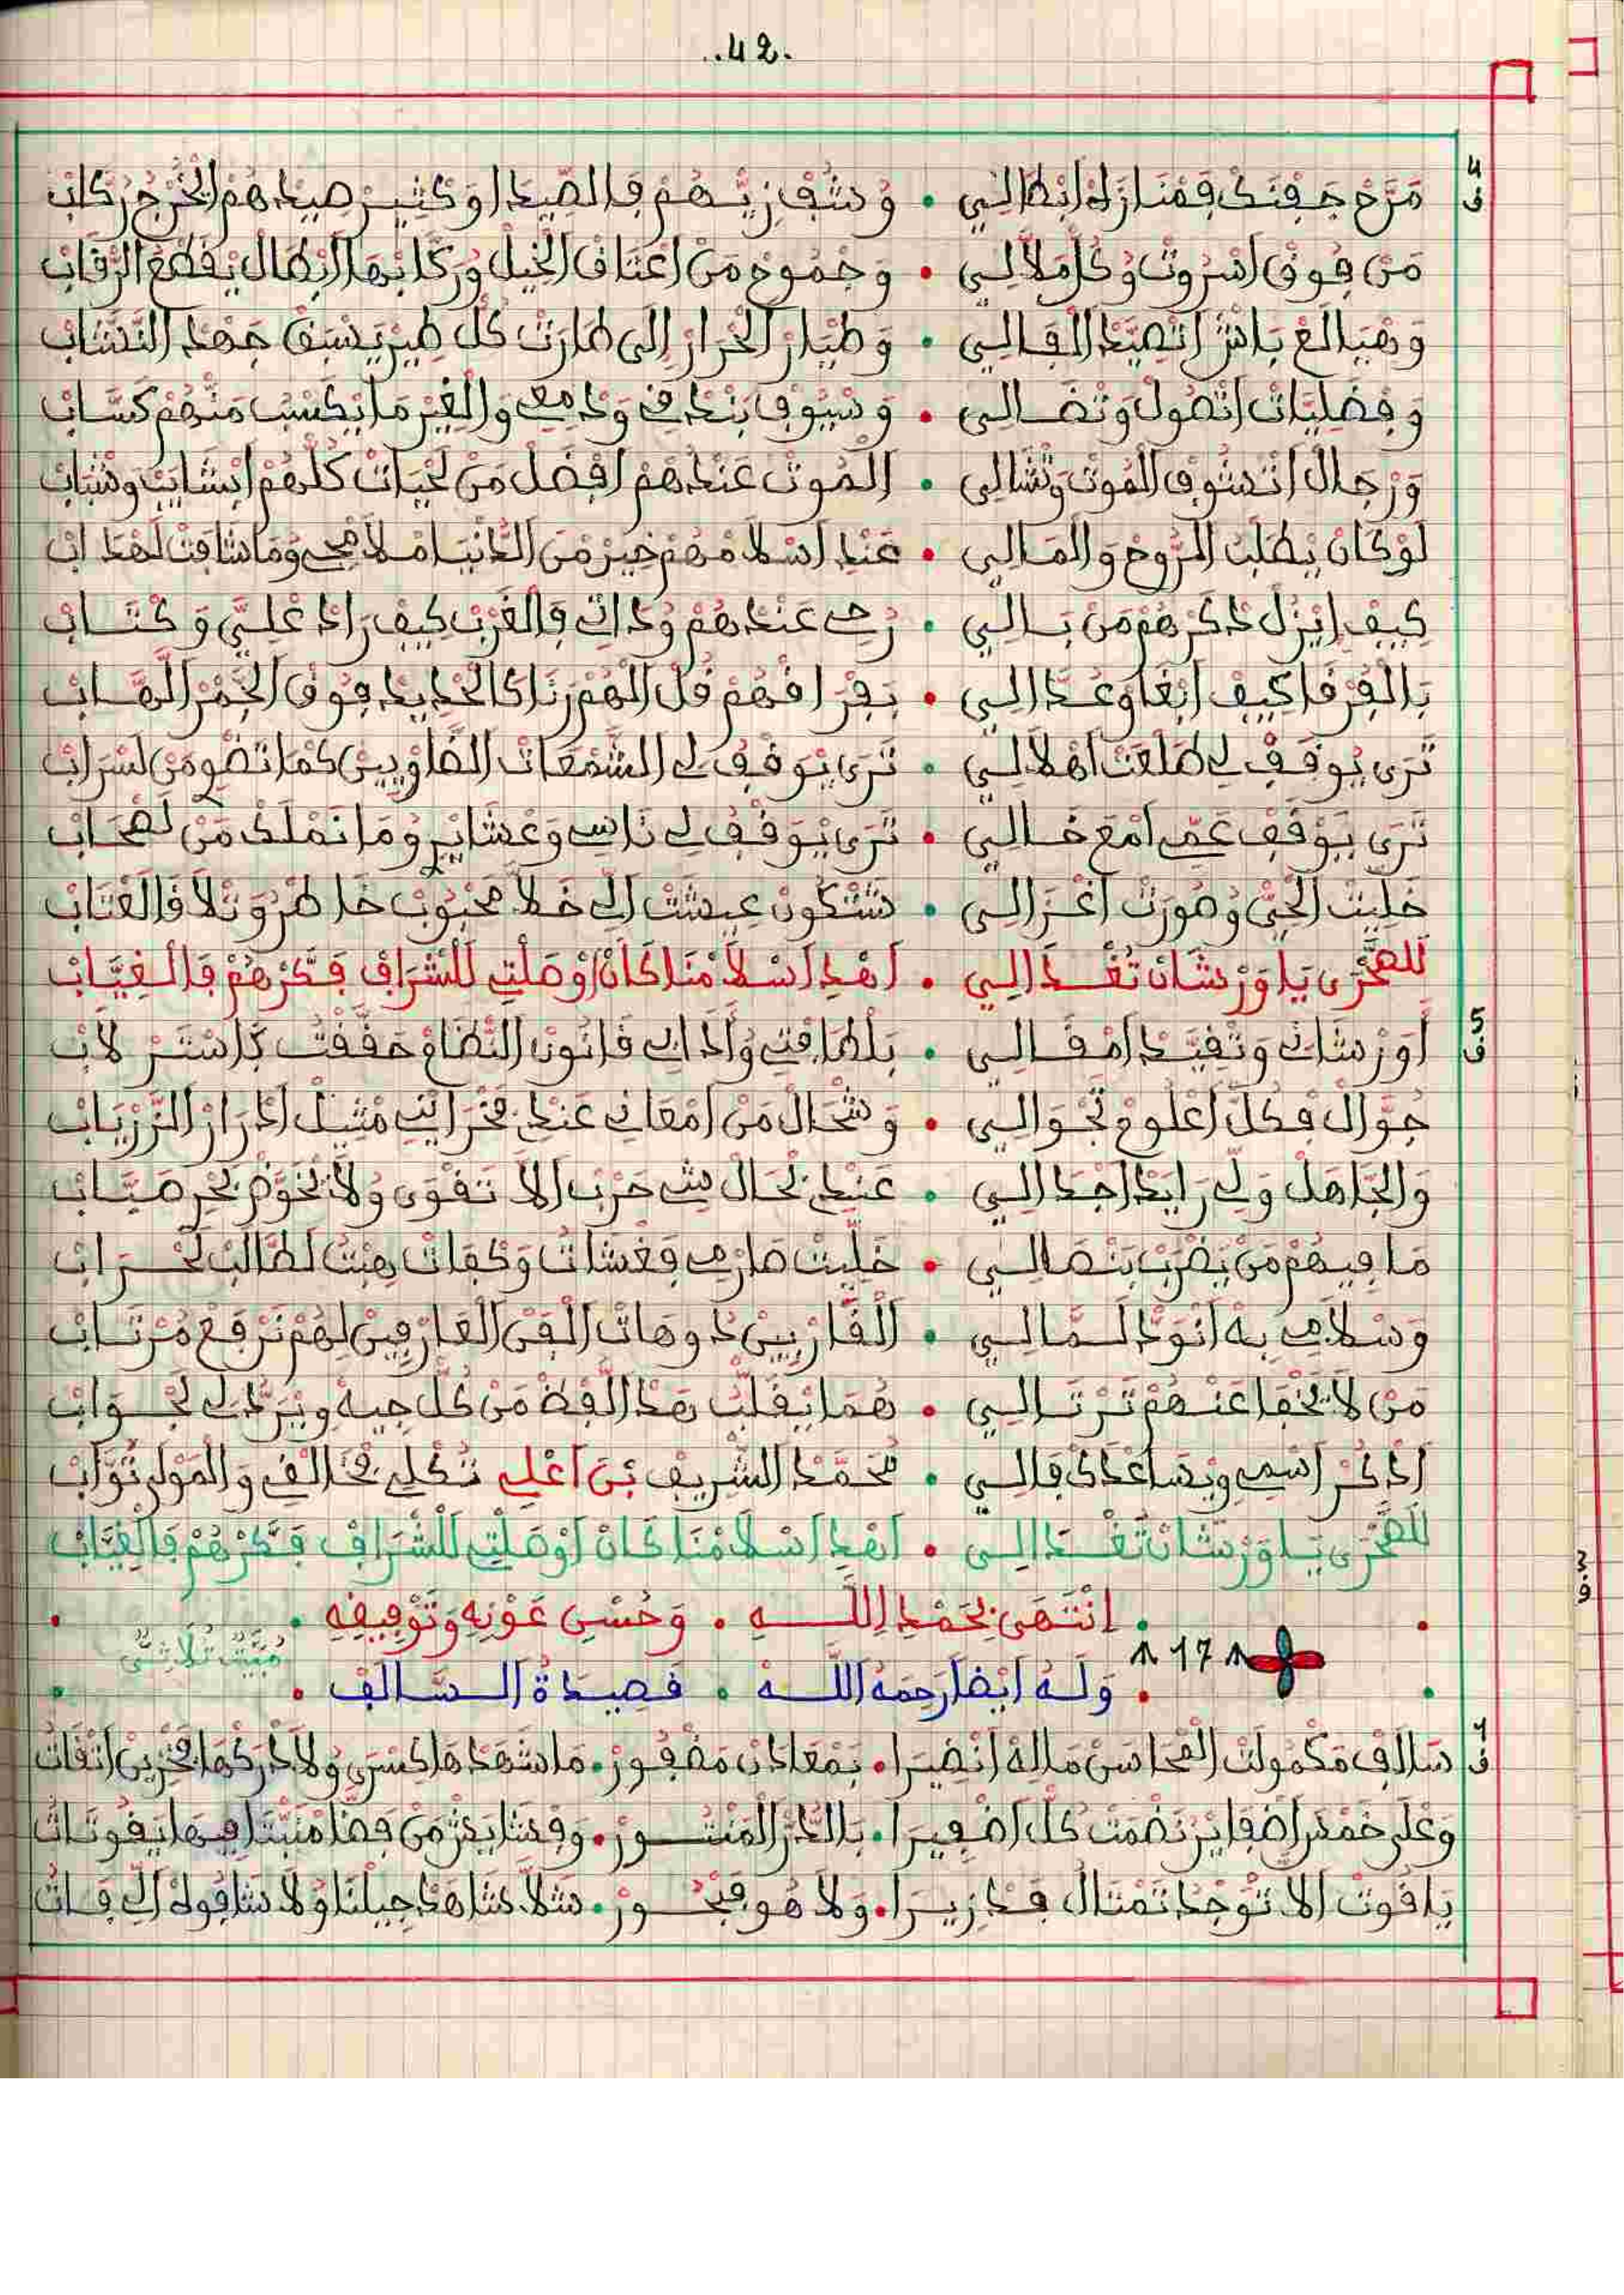 ..42.
مَرَّحْ جَفْنَكْ فَمْنَازَلْ ابْطَالِي • وُشُفْ زِيّهُمْ فَالصّيدْ اوْكْثِيرْ صِيدْهُمْ لَخْرُجْ رْكَابْ
مَنْ فُوقْ اسْرُوتْ وُكُلّ مْلَالِي • وَجْمُوعْ مَنْ اعْتَاقْ الْخِيلْ وُرْكَّابْهَا الَابْطَالْ يْقَطْعُ الرّْقَابْ
وَهْيَالَعْ بَاشْ اتْصِيّدْ الْفَالِي • وَطْيَارْ الْحْرَارْ إلَى طَارَتْ كُلّ طِيرْ يَسْبَقْ جَهْدْ النّشَّابْ
وَفْضْلِيَّاتْ اتْصُولْ وَتْضَالِي • وَسْيُوفْ بَنْدْقِي وَدْمْعِي وَالْغِيرْ مَا يْكَسْبْ مَنْهُمْ كَسَّابْ
وَرْجَالْ اتْشُوفْ الْمُوتْ وَتْشَالِي • الْمُوتْ عَنْدْهُمْ افْضَلْ مَنْ لَحْيَاتْ كُلّهُمْ ابْشَايَبْ وَشْبَابْ
لَوْكَانْ يْطَلْبُ الرُّوحْ وَالْمَالِي • عَنْدْ اسْلَامْهُمْ خِيرْ مْنَ الدَّنْيَا امْلَامْحِي وُمَا شَافَتْ لَهْدَابْ
كِيفْ إيْزُلْ ذَكْرْهُمْ مَنْ بَالِي • رُحِي عَنْدْهُمْ وُذَاتِي فَالْغَرْبْ كِيفْ رَادْ عْلِيَّ وَكْتَابْ
بَالْفَرْقَا كِيفْ ابْغَاوْ عُدَّالِي • بَفْرَاقْهُمْ قُلْ الْهُمْ رَانَا كَالْحْدِيدْ فُوقْ الْجْمَرْ اللّهَّابْ
تَرَى يْوَقَفْ لِي طَلْعَتْ اهْلَالِي • تَرَى يْوَقَفْ لِي الشّمْعَاتْ الضَّاوْيِينْ كَمَا تَضْوِي مَنْ لَسْرَابْ
تَرَى يْوَقَفْ عَمِّي امْعَ خَالِي • تَرَى يْوَقَفْ لِي نَاسِي وَعْشَايْرِي وُمَا نَمْلَكْ مَنْ لَصْحَابْ
خَلِّيتْ الْحَيّْ وُصُورَتْ اغْزَالِي • شَتْكُونْ عِيشَتْ الِّي خَلَّا مَحْبُوبْ خَاطْرُ وَتْلَاقَا لَعْتَابْ
للصَّحْرَى يَا وَرْشَانْ تُغْدَالِي • اهْدِ اسْلَامْنَا كَانْ اوْصَلْتِ لَلشْرَافْ فَكَّرْهُمْ فَالْغِيَابْ
أَوَرْشَانِي وَتْفِيَّدْ امْقَالِي • بَلْطَافْتِي وُآدَابِي قَانُونْ النّظَامْ حَقَّقْتُ بَاسْتَرْلَابْ
جُوَّالْ فْكُلّ اعْلُومْ تَجْوَالِي • وَشْحَالْ مَنْ امْعَانِي عَنْدِي فْخْزَايْنِي مْثِيلْ ادْرَارْ الزّرْيَابْ
وَالْجَاهَلْ وَلِّي رَايَدْ اجْدَالِي • عَنْدِي بْحَالْ شِي حَرْبِ الَا تَقْوَى وُلَا تْخَوَّضْ بْحَرْ صَبَّابْ
مَا فِيهُمْ مَنْ يَضْرَبْ بَنْصَالِي • خَلِّيتْ صَارْمِي فَغْشَاتُ وَكْفَاتْ هِبْتُ لَطَالَبْ لَحْرَابْ
وَسْلَامِي بِهْ انْوَدّْ لَمَّالِي • الْقَارْيِينْ دُوهَاتْ الْفَنْ الْعَارْفِينْ لِهُمْ نَرْفَعْ مُرْتَابْ
مَنْ لَا يَخْفَا عَنْهُمْ تَرْتَالِي • هُمَا يْقَلْبُ هَذَ الَّفْظْ مَنْ كُلّ جِيهْ وِيْرَدُّ لِي لَجْوَابْ
اذْكُرْ اسْمِي وِيْسَاعْدَكْ فَالِي • مُحَمَّدْ الشّرِيفْ بْنَ اعْلِي تُكْلِي فْخَالْقِي وَالْمَوْلَى تُوَّابْ
للصَّحْرَى يَا وَرْشَانْ تُغْدَالِي • اهْدِ اسْلَامْنَا كَانْ اوْصَلْتِ لَلشْرَافْ فَكَّرْهُمْ فَالْغِيَابْ
• انْتَهَى بِحَمْدِ اللَّهِ • وَحُسْنِ عَوْنِهِ وَتَوْفِيقِهِ •
17
• وَلَهُ ايْضا رَحِمَهُ اللَّه • قَصِيدَةُ السَّالَفْ • مُبَيَّتْ ثُلَاثِيّ
سَالَفْ مَكْمُولَتْ الْمْحَاسَنْ مَالِهْ انْضِيرَا • بَمْعَادَنْ مَضْفُورْ • مَا شَهْدْهَا كِسْرَى وُلَا دْرَكْهَا فْخْزِينْ اتْقَاتُ
وَعْلَى خَمْسَ اضْفَايَرْ نَضْمَتْ كُلّ اضْفِيرَا • بَالدُّرّْ الْمَنْتُورْ • وَقْشَايَشْ مَنْ فَضَّا مْنَبّْتَا فِيهَا يَقُوتَاتُ
يَاقُوتْ الَا تُوجْدْ تَمْتَالُ فَدْزِيرَا • وَلَا هُو فَبْحُورْ • شَلَّا شَاهَدْ جِيلْنَا وُلَا شَافُوهْ الِّي فَاتُ